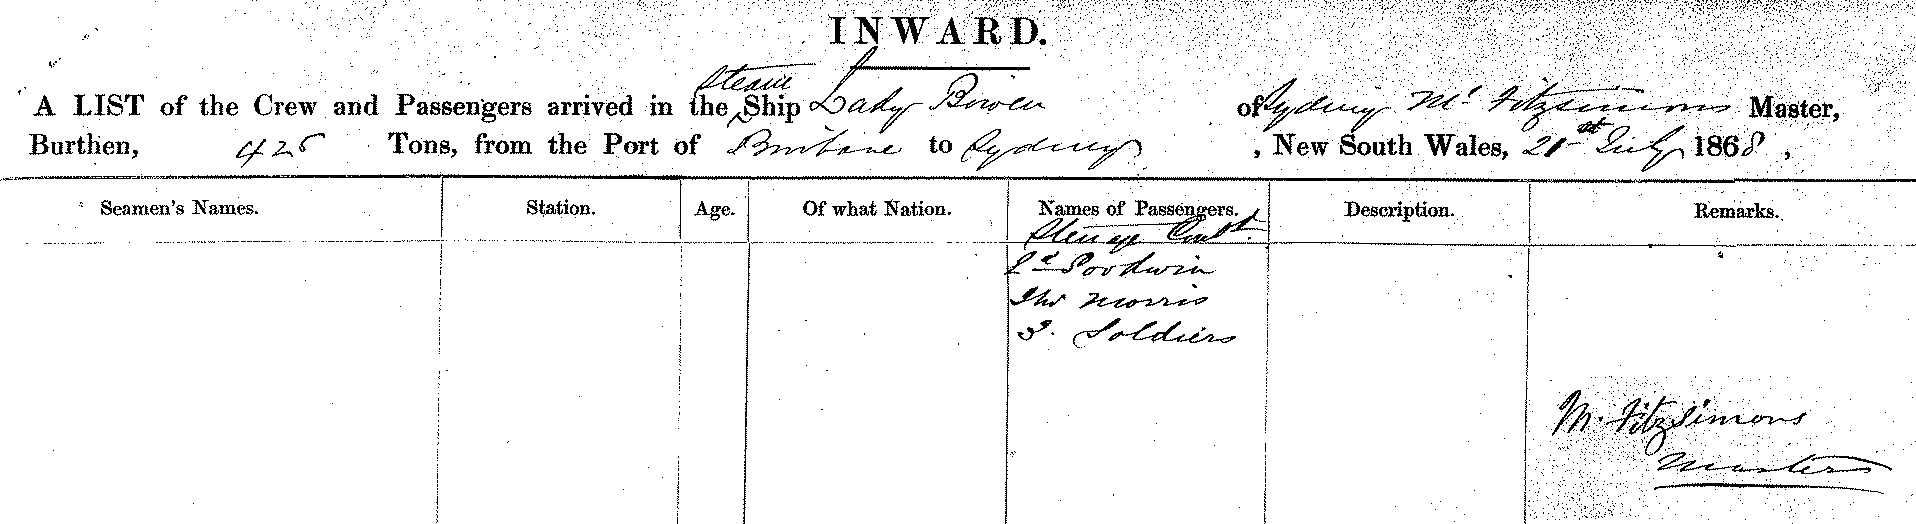 INWARD.
A LIST of the Crew and Passengers arrived in the Steam Ship Lady Bowen of Sydney M. Fitzsimons Master,
Burthen, 425 Tons, from the Port of Brisbane to Sydney, New South Wales, 21st July 1868,
Seamen's Names. Station. Age. Of what Nation. Names of Passengers. Description. Remarks.
Steerage Contd.
Goodwin
Morris
3. Soldiers
M. Fitzsimons
Master